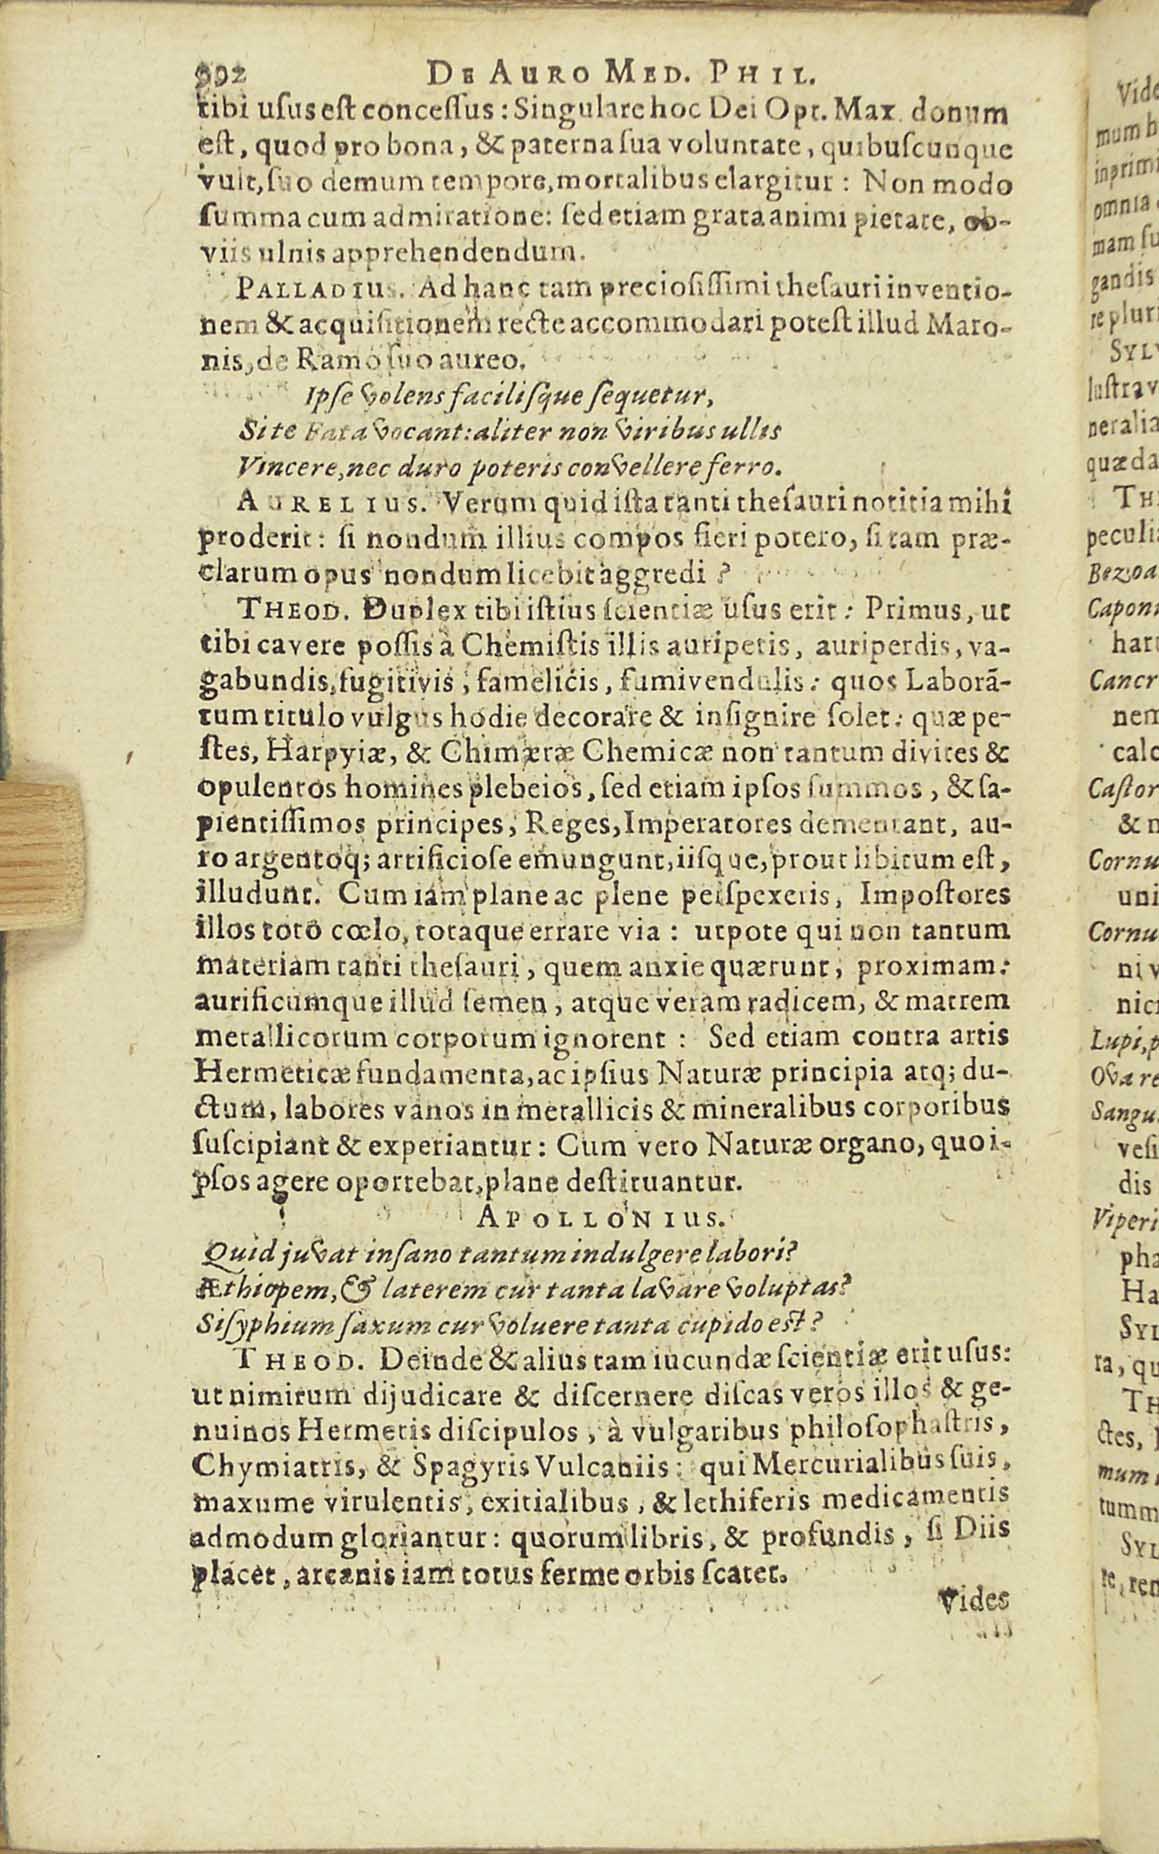 DE AURO MED. PHIL.
tibi usus est concessus: Singulare hoc Dei Opt. Max. donum
est, quod pro bona, & paterna sua voluntate, quibuscunque
vult, suo demum tempore, mortalibus elargitur: Non modo
summa cum admiratione: sed etiam grata animi pietate, ob-
viis ulnis apprehendendum.
PALLADIUS. Ad hanc tam preciosissimi thesauri inventio-
nem & acquisitionem recte accommodari potest illud Maro-
nis, de Ramo suo aureo.
Ipse volens facilisque sequetur,
Si te Fata vocant: aliter non viribus ullis
Vincere, nec duro poteris convellere ferro.
AURELIUS. Verum quid ista tanti thesauri notitia mihi
proderit: si nondum illius compos fieri potero, si tam præ-
clarum opus nondum licebit aggredi?
THEOD. Duplex tibi istius scientiæ usus erit: Primus, ut
tibi cavere possis à Chemistis illis auripetis, auriperdis, va-
gabundis, fugitivis, famelicis, fumivendulis: quos Laborã-
tum titulo vulgus hodie decorare & insignire solet: quæ pe-
stes, Harpyiæ, & Chimæræ Chemicæ non tantum divites &
opulentos homines plebeios, sed etiam ipsos summos, & sa-
pientissimos principes, Reges, Imperatores dementant, au-
ro argentoq; artificiose emungunt, iisque, prout libitum est,
illudunt. Cum iam plane ac plene perspexeris, Impostores
illos toto cœlo, totaque errare via: utpote qui non tantum
materiam tanti thesauri, quem anxie quærunt, proximam:
aurificumque illud semen, atque veram radicem, & matrem
metallicorum corporum ignorent: Sed etiam contra artis
Hermeticæ fundamenta, ac ipsius Naturæ principia atq; du-
ctum, labores vanos in metallicis & mineralibus corporibus
suscipiant & experiantur: Cum vero Naturæ organo, quo i-
psos agere oportebat, plane destituantur.
APOLLONIUS.
Quid juvat insano tantum indulgere labori?
Æthiopem, & laterem cur tanta lavare voluptas?
Sisyphium saxum cur voluere tanta cupido est?
THEOD. Deinde & alius tam iucundæ scientiæ erit usus:
ut nimirum dijudicare & discernere discas veros illos & ge-
nuinos Hermetis discipulos, à vulgaribus philosophastris,
Chymiatris, & Spagyris Vulcaniis: qui Mercurialibus suis,
maxume virulentis, exitialibus, & lethiferis medicamentis
admodum gloriantur: quorum libris, & profundis, si Diis
placet, arcanis iam totus ferme orbis scatet.
Vides
Vide
mum h
inprimi
omnia
mam su
gandis
re pluri
SYLV
lustra v
neralia
quæda
TH
peculi
Bezoa
Capon
hart
Cancr
nem
calc
Castor
& n
Cornu
uni
Cornu
ni v
nici
Lupi, p
Ova re
Sangu
vesi
dis
Viperi
pha
Ha
SYL
ra, qu
TH
ctes,
mum
tumm
SYL
re, ren